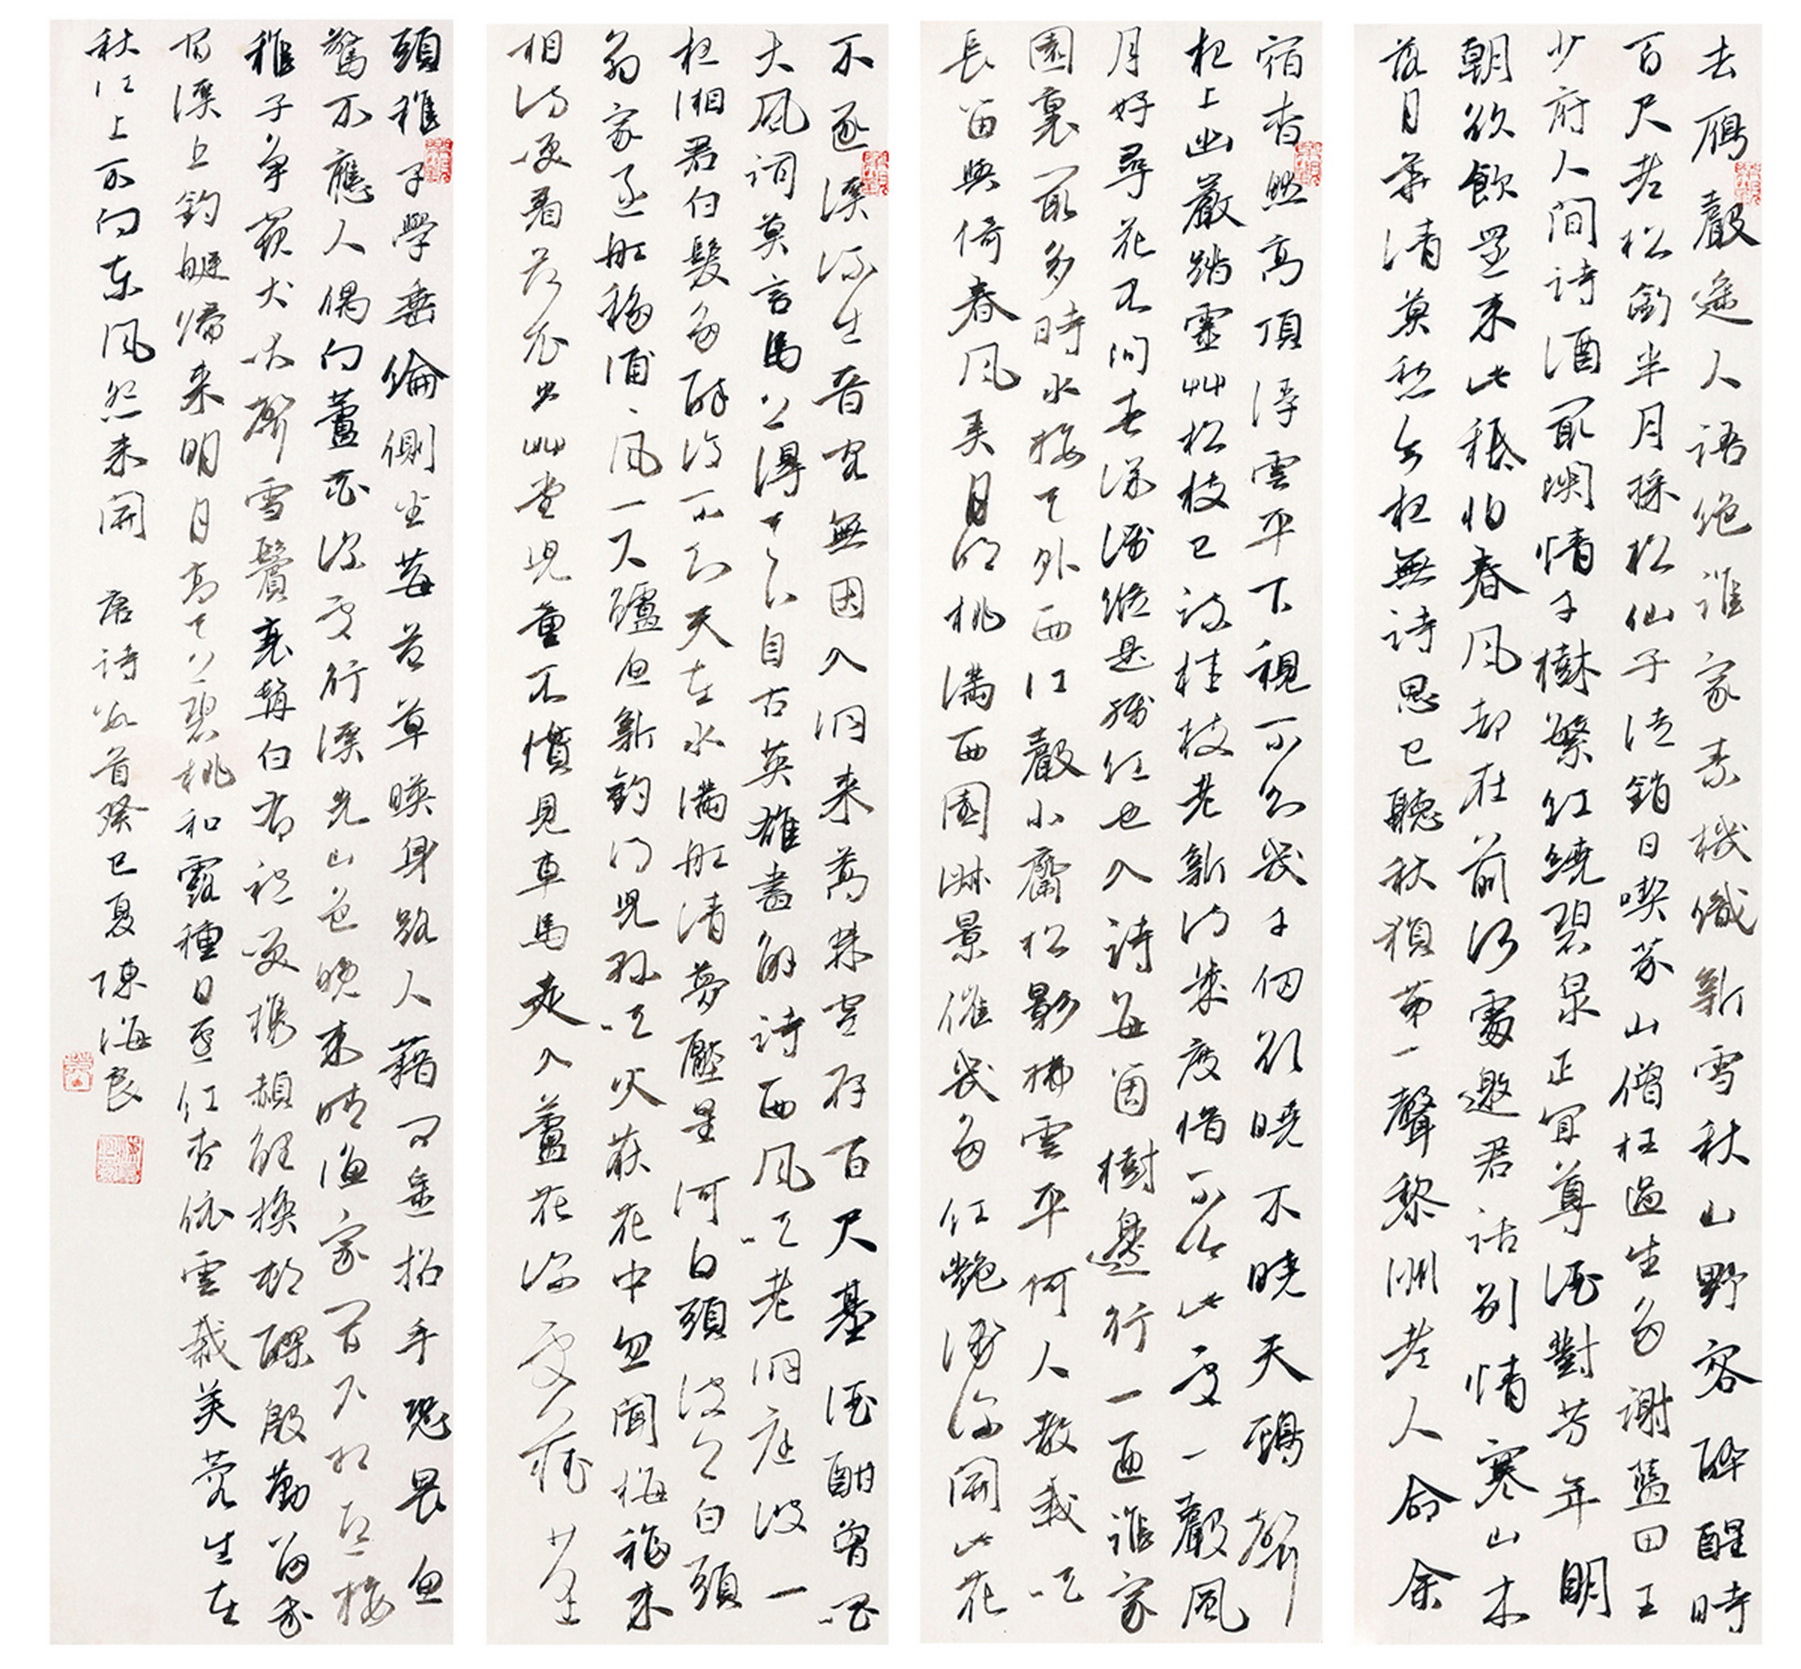 去雁聲遙人語絕誰家素機織新雪秋山野客醉醒時
百尺老松銜半月採松仙子徒銷日喫菜山僧枉過生多謝藍田王
少府人間詩酒最關情千樹繁紅繞碧泉正宜尊酒對芳年明
朝欲飲還來此秪怕春風却在前何處邀君話別情寒山木
落月華清莫愁今夜無詩思已聽秋猿第一聲黎洲老人命余
宿杳然高頂浮雲平下視不知幾千仞欲曉不曉天鷄聲
夜上幽巖踏靈艸松枝已疎桂枝老新詩幾度惜不吟此處一聲風
月好尋花不問春深淺縱是殘紅也入詩每箇樹邊行一匝誰家
園裏最多時水接天外西江聲小齋松影拂雲平何人教我吹
長笛與倚春風弄月明桃滿西園淑景催幾多紅艷淺深開此花
不逐溪流出晉客無因入洞來蒿棘空存百尺基酒酣曾唱
大風詞莫言馬上得天下自古英雄盡解詩西風吹老洞庭波一
夜湘君白髮多醉後不知天在水滿船清夢壓星河白頭波上白頭
翁家逐船移浦浦風一尺鱸魚新釣得兒孫吹火荻花中忽聞梅福來
相訪咲着荷衣出艸堂兒童不慣見車馬走入蘆花深處藏蓬
頭稚子學垂綸側坐莓苔草暎身路人藉問遙招手恐畏魚
驚不應人偶向蘆花深處行溪光山色晚來晴漁家開戶相迎接
稚子争窺犬吠聲雪鬢衰髯白布袍咲携赬鯉換村醪殷勤留我
宿溪上釣艇歸來明月高天上碧桃和露種日邊紅杏倚雲栽芙蓉生在
秋江上不向東風怨未開 唐詩數首癸巳夏陳海良